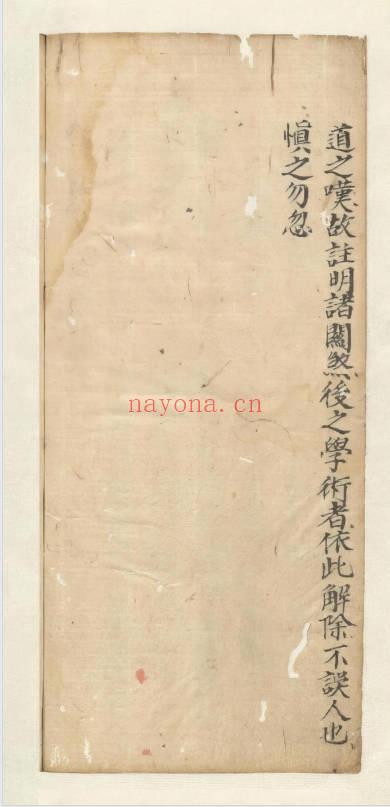 道之嘆故註明諸關煞後之學術者依此解除不誤人也
慎之勿忽
nayona.cn